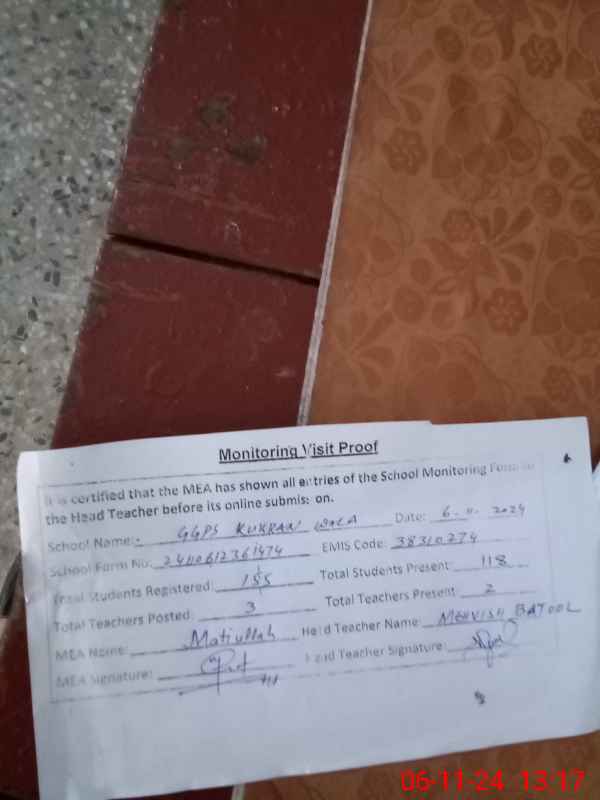 Monitoring Visit Proof
It is certified that the MEA has shown all entries of the School Monitoring Form to
the Head Teacher before its online submission.
School Name: GGPS KUKRAN WALA Date: 6-11-2024
School Form No: EMIS Code: 38310274
Total Students Registered: 155 Total Students Present: 118
Total Teachers Posted: 3 Total Teachers Present: 2
MEA Name: Matiullah Head Teacher Name: MEHVISH BATOOL
MEA Signature: Head Teacher Signature:
06-11-24 13:17